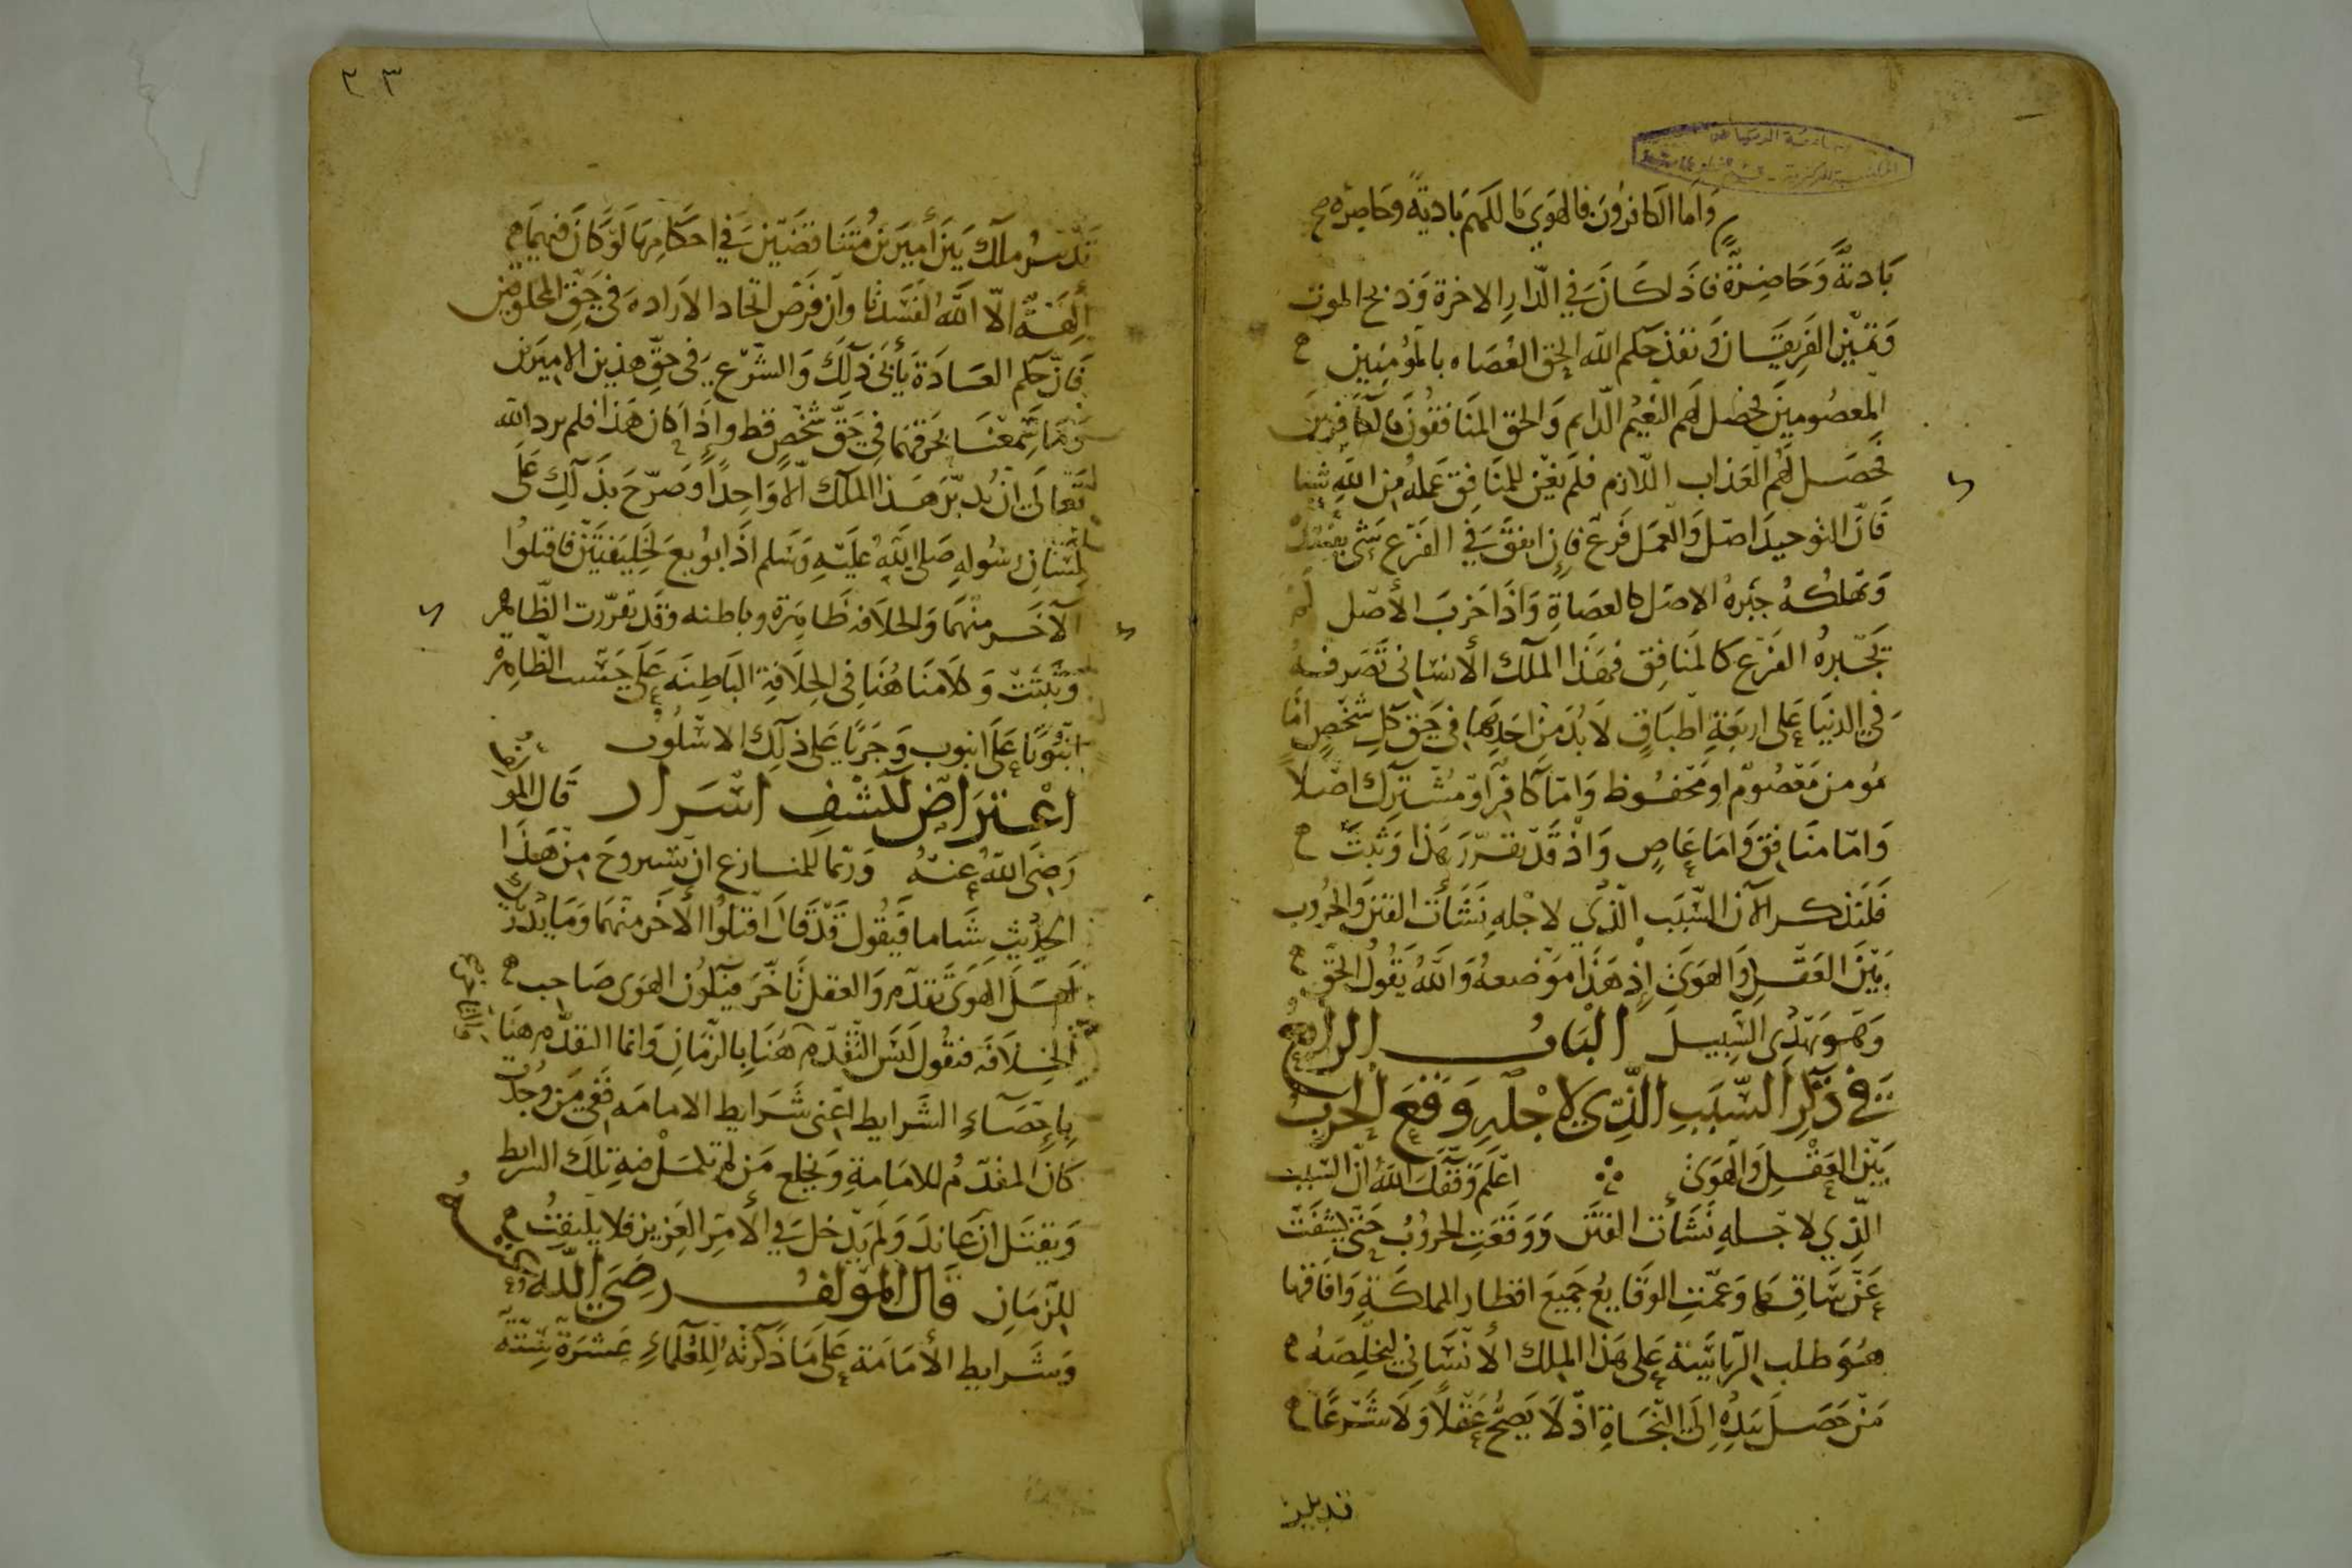 جامعة الرياض
واما الكافرون فالهوى مالكهم بادية وحاضرة
بَادية وَحَاضِرة فاذا كَانَ في الدّار الاخرة وَذبح الموت
وَتميّز الفَريقَان وَنفذ حكم الله اُلحِق العُصَاه بالمؤمنِين
المعصُومينَ فحصل لهم النعيُم الدّايم وَالحق المنَافقُونَ بالكافرينَ
فحصَل لهُم العَذاب اللّازم فلَم يغن للمنَافِق عَملهُ مِن اللّهِ شيئا
فَانّ التوحيدَ اصل وَالعمَل فَرع فإن اتفقَ في الفَرْع شَي يفسده
وَيهلكهُ جبَرهُ الاصل كالعصَاةِ وَاذَا خربَ الأصل لم
يَجبرهُ الفَرْع كالمنَافِق فهَذَا الملك الأنسَانى تصَرفهُ
في الدنيَا عَلى اربَعَةِ اطبَاقٍ لَا بُدّ مِن احَدِهَا في حَق كلِ شخْصٍ امّا
مُومن مَعْصُوم او مَحفُوظ وَامّا كافر اَو مُشترك اصلًا
وَامّا منَافِق وَامَا عَاصٍ وَاذ قَد تقَرّرَ هَذا وَثبتَ
فَلنَذكر الآن السَّبَب الّذِي لاجْلهِ نَشَأت الفتن وَالحرُوب
بَيْنَ العَقل وَالهَوىَ إذ هَذا مَوْضعهُ وَاللهُ يَقُولُ الحَقّ
وَهَو يَهْدِى السَّبيلَ البَابُ الرابع
في ذِكرِ السَّبَبِ الَّذِي لاجْلِهِ وَقعَ الحَربُ
بَيْنَ العَقْلِ وَالهَوىَ اعْلَم وَفقَك اللهُ انّ السّبب
الّذِي لاجْلهِ نَشَأت الفتَن وَوَقَعَتِ الحرُوبُ حَتّى كشفَت
عَن سَاقِهَا وَعَمّتِ الوقَايعُ جَميعَ اقطار المملكَةِ وَافَاقهَا
هُوَ طلب الرياسَة عَلى هَذا الملك الانْسَانِي ليخلّصَهُ
مَن حَصَلَ بيَدِهِ إلَى النّجَاةِ اذ لَا يَصِحُّ عَقْلًا وَلَا شَرْعًا
تدبير
٢٣
تَدبيرُ ملك بَيَن أميرَين مُتَنَاقضَيْن في احكامِهَا لَوْ كانَ فيهمَا
آلهَةٌ الّا اللَّهُ لَفَسَدَتَا وَان فرض اتحاد الارادة في حَقّ المخلوقين
فَانّ حكم العَادَة يَأبى ذلِكَ وَالشّرع في حَقِّ هذين الاميرَين
وَمَا سَمعْنَا بخرقهَا في حَقّ شخْصٍ قط واذَا كان هَذا فلم يرد الله
تعَالَى ان يُدبّر هَذا الملك الّا وَاحِدًا وَصَرّحَ بذَلِك عَلَى
لسَان رَسُولهِ صَلى اللهُ عَليَهِ وَسَلم اذَا بُويعَ لخلِيفَتَيْن فاقتلوُا
الآخَر منهمَا وَالخلَافة ظَاهِرَة وباطنه وقَد تقرّرت الظّاهِر
وَثبتَتْ وَكلَامنَا هُنَا فى الخِلَافةِ البَاطِنَه عَلى حَسَب الظّاهِر
انبُوبًا عَلَى انبوب وَجَريًا عَلى ذَلِك الاسْلُوب
اعْتراض لكشْفِ اسْرَار قَال المولف
رَضِىَ اللهُ عَنهُ وَربّما للمنازع ان يسروحَ مِن هَذَا
الحدِيثِ شَاما فَيقُول قَد قَالَ اقتلُوا الأخَر منهمَا وَمَا يُدريك
لعَلَ الهوَىَ تقدّم وَالعقل تَاخّرَ فيكُون الهَوى صَاحب
الخِلَافَة فنقُول لَيسَ التَّقدّم هُنَا بالزّمَانِ وَانما التقدّم هنَا
بِاحْصَاءِ الشّرايط اعْنى شَرَايط الامامَه ففي مَن وُجدت
كانَ المقدّم للامَامَةِ وَيخلع مَن لم تكمل فيهِ تلك الشرايط
وَيقتَل ان عَاندَ وَلَم يَدخل في الأمِر العَزيز فلا يلتفِتُ
للزّمَانِ قَالَ المؤلفُ رَضِىَ اللّه
وَشَرايط الأمَامَة عَلى مَا ذكرتهُ العُلمَاءِ عَشرَة سِتّة